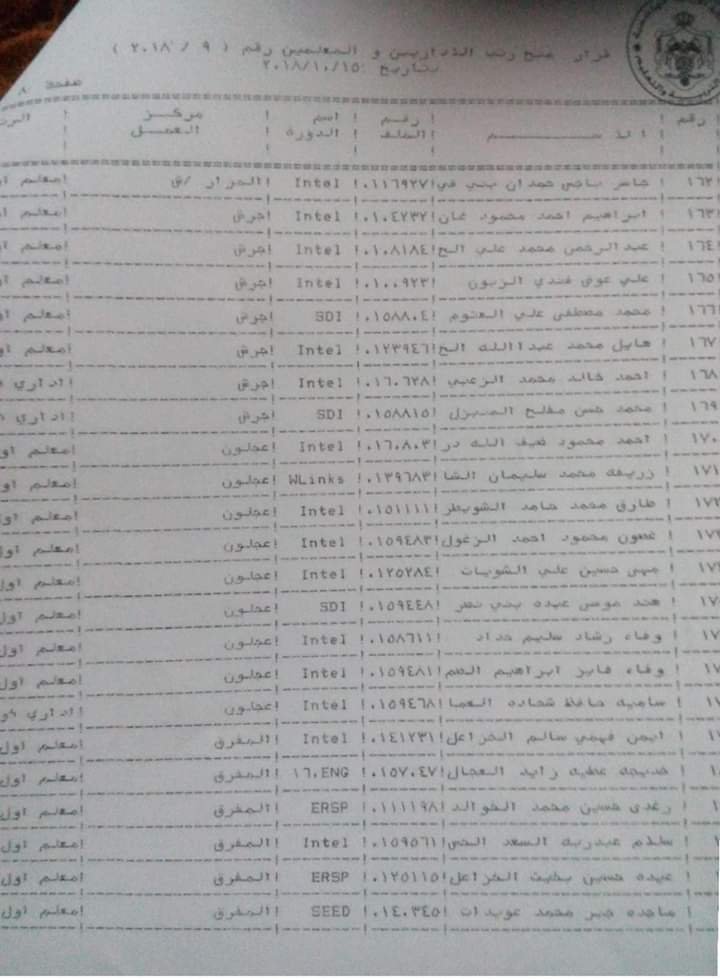 قرار منح رتب الاداريين و المعلمين رقم ( ٩ / ٢٠١٨ )
بتاريخ :٢٠١٨/١٠/١٥
صفحة ٨
رقم ! الاســـــــــم ! رقم الملف ! اسم الدورة ! مركـــز العمـــل !
١٦٢ ! جاسر ناجي حمدان بني في!٠١١٦٩٢٧! Intel !الجزار /ش !معلم او
١٦٣ ! ابراهيم احمد محمود عنان!٠١٠٤٢٣٢! Intel !جرش !معلم او
١٦٤ ! عبدالرحمن محمد علي الخ!٠١٠٨١٨٤! Intel !جرش !معلم او
١٦٥ ! علي عوض فندي الزبون !٠١٠٠٩٢٣! Intel !جرش !معلم او
١٦٦ ! محمد مصطفى علي العتوم !٠١٥٨٨٠٤! SDI !جرش !معلم او
١٦٧ ! هايل محمد عبداالله الخ!٠١٢٣٩٤٦! Intel !جرش !معلم او
١٦٨ ! احمد خالد محمد الزعبي !٠١٦٠٦٢٨! Intel !جرش !اداري
١٦٩ ! محمد حسن مفلح !٠١٥٨٨١٥! SDI !جرش !اداري
١٧٠ ! احمد محمود ضيف الله در!٠١٦٠٨٠٣! Intel !عجلون !معلم او
١٧١ ! زريفه محمد سليمان الشا!٠١٣٩٦٨٣! WLinks !عجلون !معلم او
١٧٢ ! طارق محمد حامد الشويطر!٠١٥١١١١! Intel !عجلون !معلم اول
١٧٣ ! غصون محمود احمد الزغول!٠١٥٩٤٨٣! Intel !عجلون !معلم اول
١٧ ! مهى حسين علي الشويات !٠١٢٥٢٨٤! Intel !عجلون !معلم اول
١٧ ! هند موسى عبده بني نصر !٠١٥٩٤٤٨! SDI !عجلون !معلم اول
١٧ ! وفاء رشاد سليم حداد !٠١٥٨٦١١! Intel !عجلون !معلم اول
١٧ ! وفاء فايز ابراهيم الصم!٠١٥٩٤٨١! Intel !عجلون !معلم اول
١٧ ! ساميه حافظ شحاده العسا!٠١٥٩٤٦٨! Intel !عجلون !اداري
١ ! ايمن فهمي سالم الخزاعل!٠١٤١٢٣١! Intel !المفرق !معلم اول
١ ! خديجه عطيه زايد !٠١٥٧٠٤٧! ١٦.ENG !المفرق !معلم اول
١ ! رغدى حسين محمد الخوالد!٠١١١١٩٨! ERSP !المفرق !معلم اول
! سلام عبدربه السعد الحي!٠١٥٩٥٦١! Intel !المفرق !معلم اول
! عبده حسين بخيت الخزاعل!٠١٢٥١١٥! ERSP !المفرق !معلم اول
! ماجده جبر محمد عويدات !٠١٤٠٣٤٥! SEED !المفرق !معلم اول